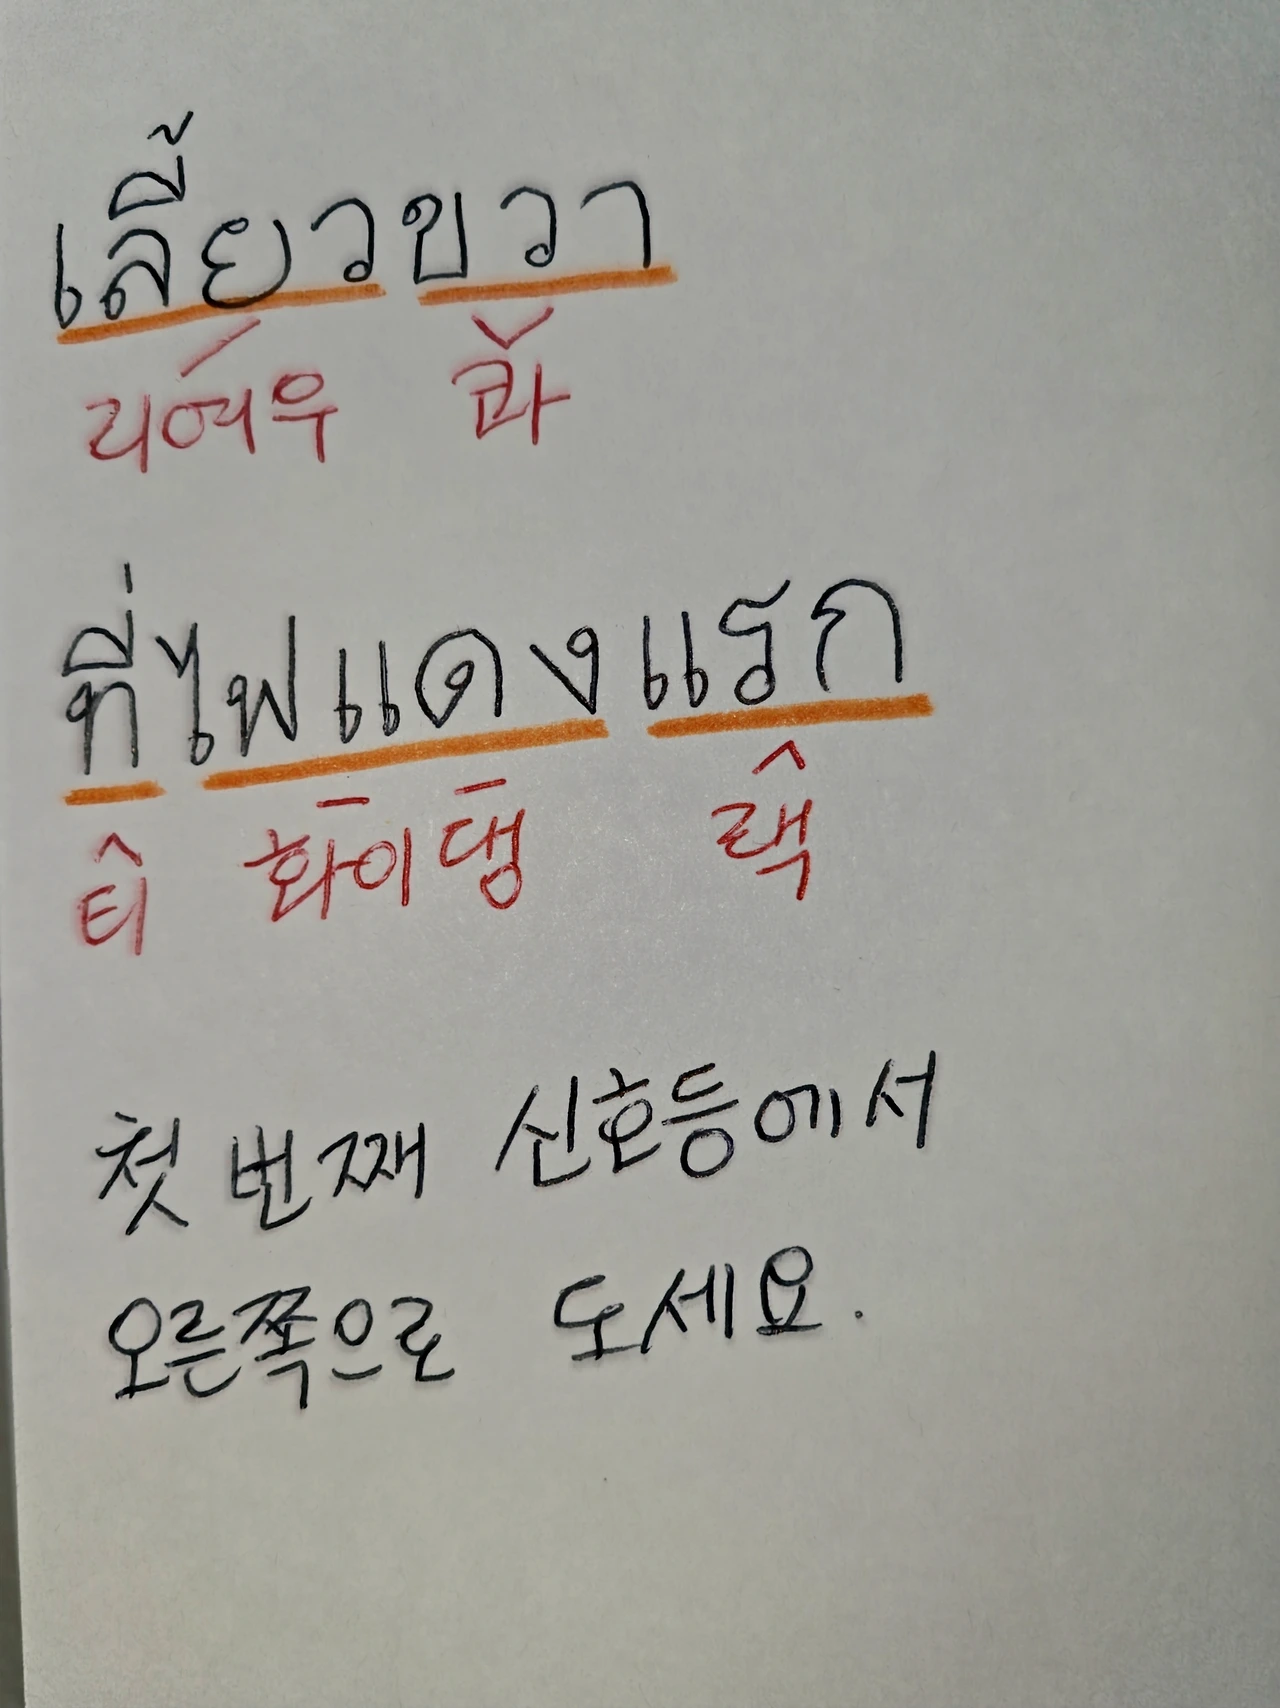 เลี้ยวขวา
리여우 콰
ที่ไฟแดงแรก
티 화이 댕 랙
첫 번째 신호등에서
오른쪽으로 도세요.